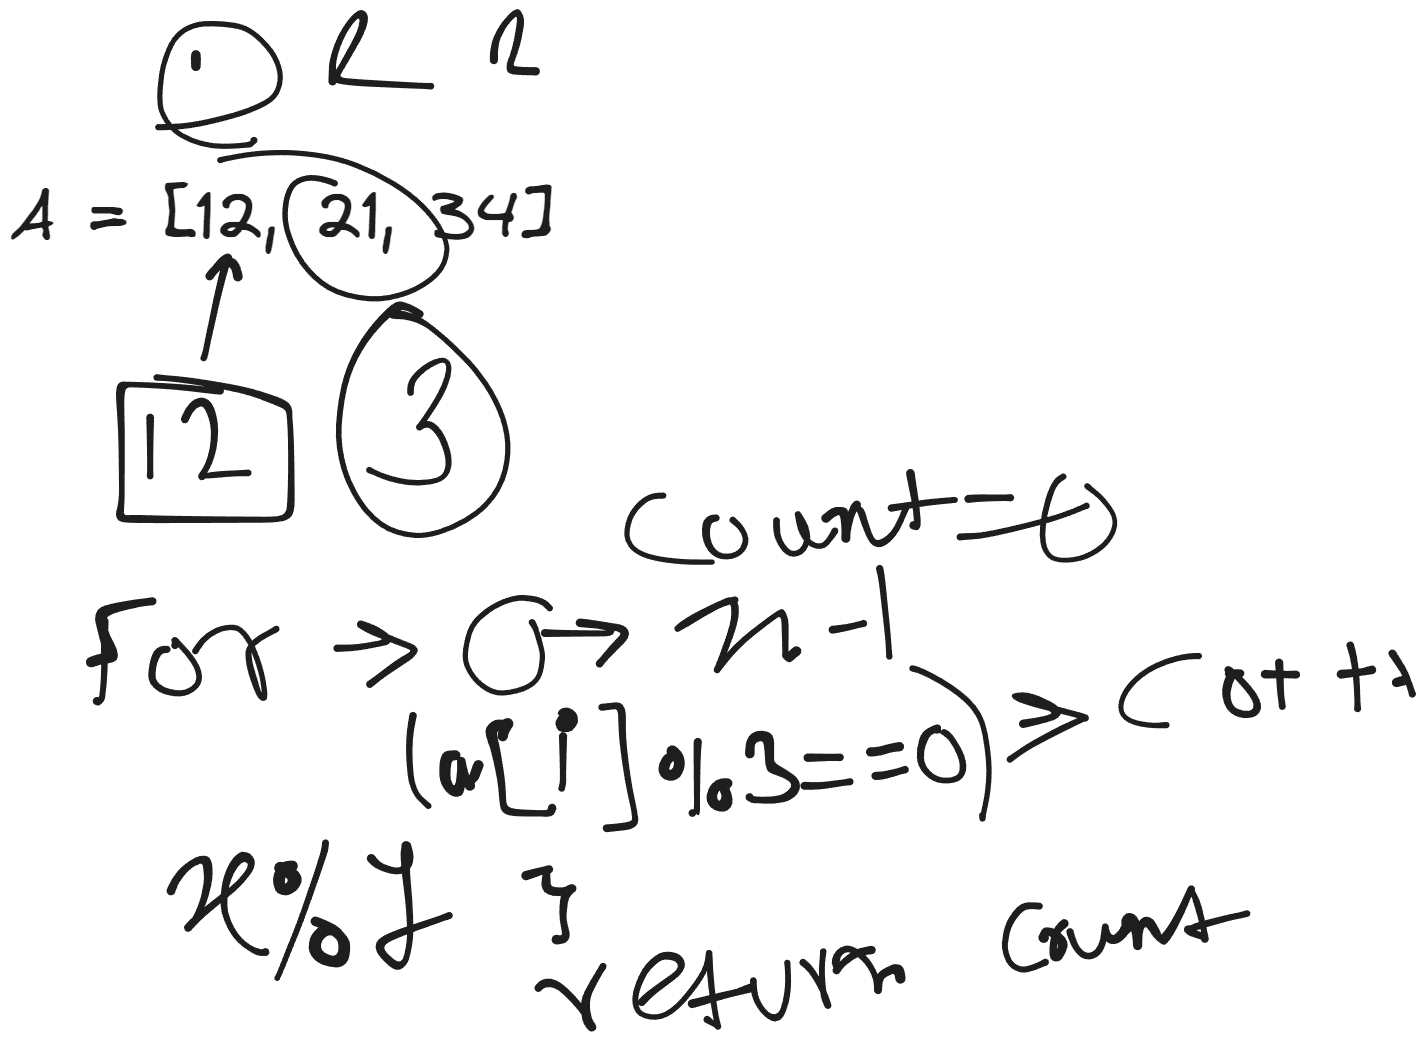 A = [12, 21, 34]
12 3
Count=0
for → 0 → n-1
(a[i]%3==0) > Co++
x%y }
return Count